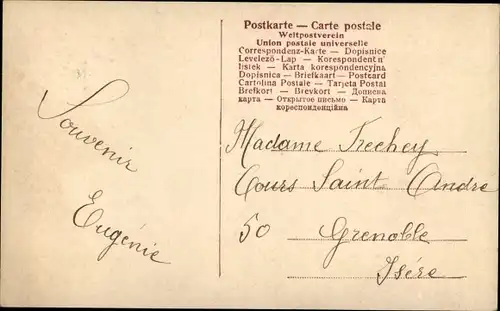 Postkarte — Carte postale
Weltpostverein
Union postale universelle
Correspondenz-Karte — Dopisnice
Levelező-Lap — Korespondent n'
listek — Karta korespondencyjna
Dopisnica — Briefkaart — Postcard
Cartolina Postale — Tarjeta Postal
Brefkort — Brevkort — Дописна
карта — Открытое письмо — Карта
кореспонденційна
Souvenir
Eugénie
Madame Frechey
Cours Saint Andre
50 Grenoble
Isére